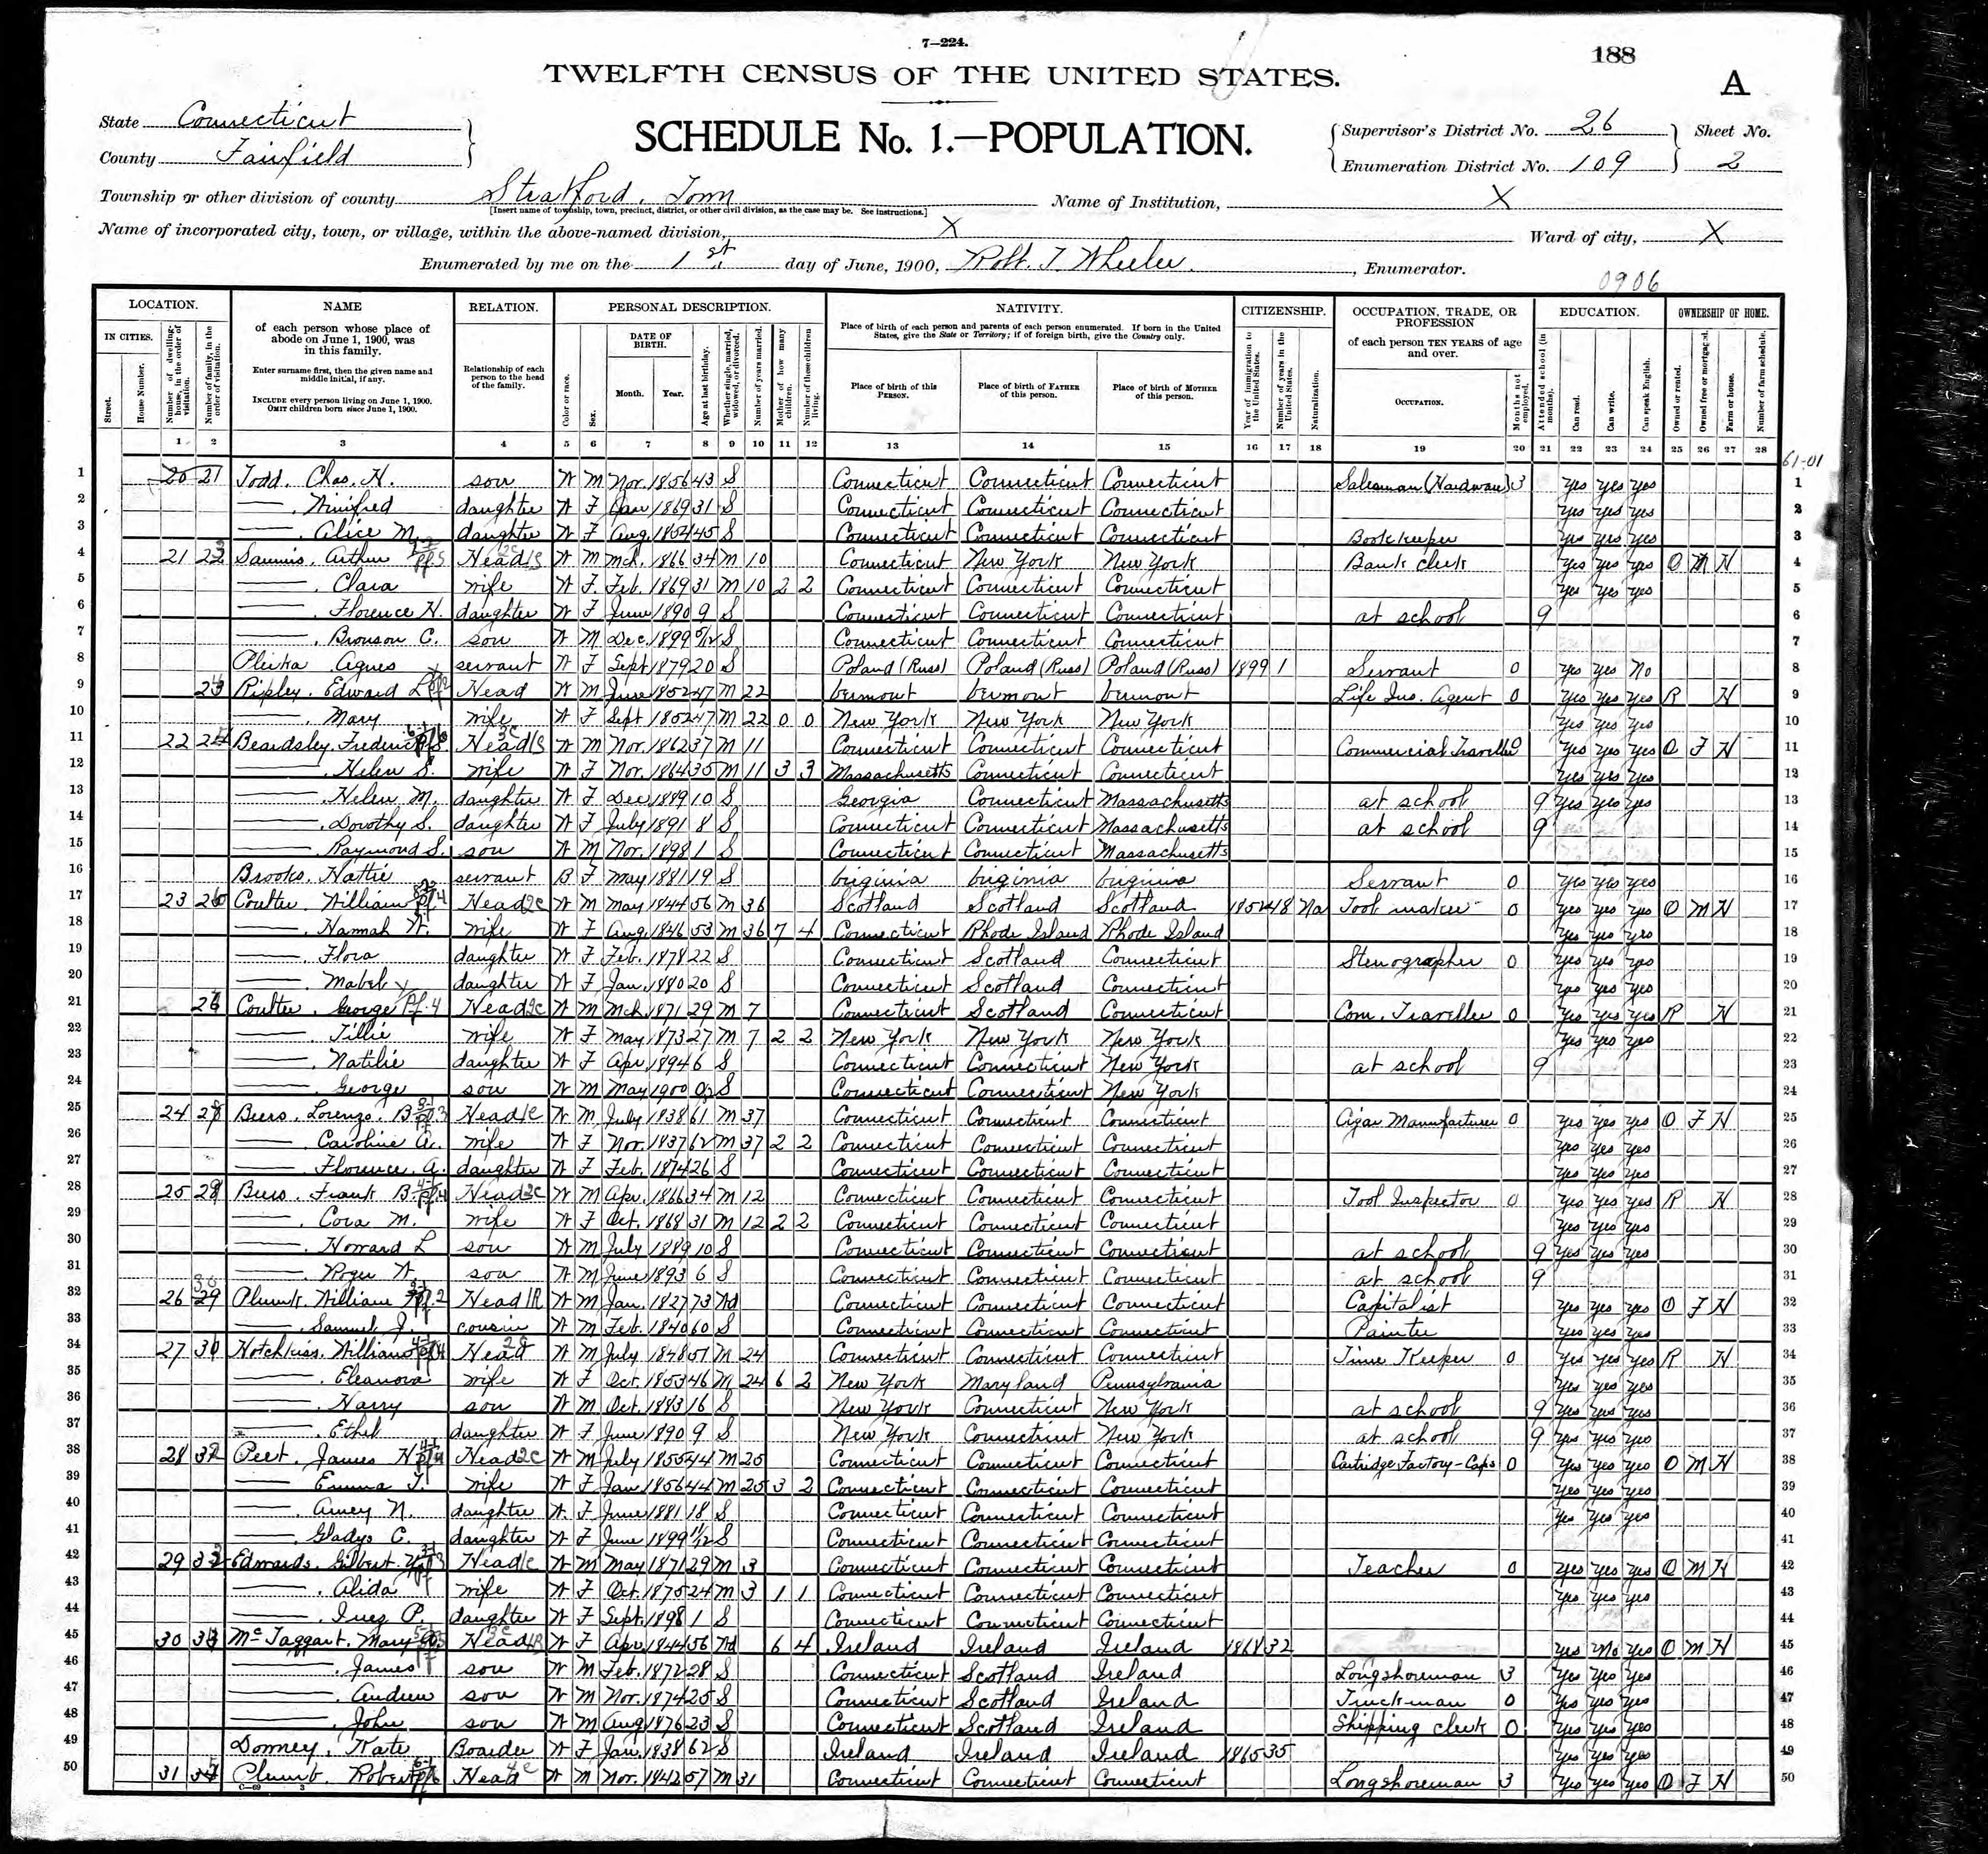 7—224.
188
TWELFTH CENSUS OF THE UNITED STATES.
A
State Connecticut
County Fairfield
SCHEDULE No. 1.—POPULATION.
Supervisor's District No. 26 Sheet No.
Enumeration District No. 109 2
Township or other division of county Stratford, Town Name of Institution, X
[Insert name of township, town, precinct, district, or other civil division, as the case may be. See instructions.]
Name of incorporated city, town, or village, within the above-named division, X Ward of city, X
Enumerated by me on the 1st day of June, 1900, Robt. T. Wheeler, Enumerator.
0906
LOCATION. NAME RELATION. PERSONAL DESCRIPTION. NATIVITY. CITIZENSHIP. OCCUPATION, TRADE, OR PROFESSION EDUCATION. OWNERSHIP OF HOME.
IN CITIES. Street. House Number. Number of dwelling-house, in the order of visitation. Number of family, in the order of visitation.
of each person whose place of abode on June 1, 1900, was in this family.
Enter surname first, then the given name and middle initial, if any.
INCLUDE every person living on June 1, 1900.
OMIT children born since June 1, 1900.
Relationship of each person to the head of the family.
Color or race. Sex. DATE OF BIRTH. Month. Year. Age at last birthday. Whether single, married, widowed, or divorced. Number of years married. Mother of how many children. Number of these children living.
Place of birth of each person and parents of each person enumerated. If born in the United States, give the State or Territory; if of foreign birth, give the Country only.
Place of birth of this PERSON. Place of birth of FATHER of this person. Place of birth of MOTHER of this person.
Year of immigration to the United States. Number of years in the United States. Naturalization.
of each person TEN YEARS of age and over.
OCCUPATION. Months not employed.
Attended school (in months). Can read. Can write. Can speak English.
Owned or rented. Owned free or mortgaged. Farm or house. Number of farm schedule.
1 2 3 4 5 6 7 8 9 10 11 12 13 14 15 16 17 18 19 20 21 22 23 24 25 26 27 28
61-01
1 20 21 Todd, Chas. H. son W M Nov. 1856 43 S Connecticut Connecticut Connecticut Salesman (Hardware) 3 yes yes yes 1
2 —, Winifred daughter W F Jan 1869 31 S Connecticut Connecticut Connecticut yes yes yes 2
3 —, Alice M. daughter W F Aug. 1854 45 S Connecticut Connecticut Connecticut Bookkeeper yes yes yes 3
4 21 Arthur Head W M Mch. 1866 34 M 10 Connecticut New York New York Bank clerk yes yes yes O M H 4
5 —, Clara wife W F Feb. 1869 31 M 10 2 2 Connecticut Connecticut Connecticut yes yes yes 5
6 —, Florence H. daughter W F June 1890 9 S Connecticut Connecticut Connecticut at school 9 6
7 —, Bronson C. son W M Dec. 1899 5/12 S Connecticut Connecticut Connecticut 7
8 Agnes servant W F Sept 1879 20 S Poland (Russ) Poland (Russ) Poland (Russ) 1899 1 Servant 0 yes yes No 8
9 Ripley, Edward Head W M June 1852 47 M 22 Vermont Vermont Vermont Life Ins. Agent 0 yes yes yes R H 9
10 —, Mary wife W F Sept 1852 47 M 22 0 0 New York New York New York yes yes yes 10
11 22 Beardsley, Frederick S. Head W M Nov. 1862 37 M 11 Connecticut Connecticut Connecticut Commercial Traveller 0 yes yes yes O F H 11
12 —, Helen S. wife W F Nov. 1864 35 M 11 3 3 Massachusetts Connecticut Connecticut yes yes yes 12
13 —, Helen M. daughter W F Dec 1889 10 S Georgia Connecticut Massachusetts at school 9 yes yes yes 13
14 —, Dorothy S. daughter W F July 1891 8 S Connecticut Connecticut Massachusetts at school 9 14
15 —, Raymond S. son W M Nov. 1898 1 S Connecticut Connecticut Massachusetts 15
16 Brooks, Hattie servant B F May 1881 19 S Virginia Virginia Virginia Servant 0 yes yes yes 16
17 23 Coulter, William Head W M May 1844 56 M 36 Scotland Scotland Scotland 1852 48 Na Tool maker 0 yes yes yes O M H 17
18 —, Hannah W. wife W F Aug. 1846 53 M 36 7 4 Connecticut Rhode Island Rhode Island yes yes yes 18
19 —, Flora daughter W F Feb. 1878 22 S Connecticut Scotland Connecticut Stenographer 0 yes yes yes 19
20 —, Mabel daughter W F Jan. 1880 20 S Connecticut Scotland Connecticut yes yes yes 20
21 Coulter, George Head W M Mch. 1871 29 M 7 Connecticut Scotland Connecticut Com. Traveller 0 yes yes yes R H 21
22 —, Tillie wife W F May 1873 27 M 7 2 2 New York New York New York yes yes yes 22
23 —, Natilie daughter W F Apr. 1894 6 S Connecticut Connecticut New York at school 9 23
24 —, George son W M May 1900 S Connecticut Connecticut New York 24
25 24 Beers, Lorenzo B Head W M July 1838 61 M 37 Connecticut Connecticut Connecticut Cigar Manufacturer 0 yes yes yes O F H 25
26 —, Caroline A. wife W F Nov. 1837 62 M 37 2 2 Connecticut Connecticut Connecticut yes yes yes 26
27 —, Florence A. daughter W F Feb. 1874 26 S Connecticut Connecticut Connecticut yes yes yes 27
28 25 Beers, Frank B Head W M Apr. 1866 34 M 12 Connecticut Connecticut Connecticut Tool Inspector 0 yes yes yes R H 28
29 —, Cora M. wife W F Oct. 1868 31 M 12 2 2 Connecticut Connecticut Connecticut yes yes yes 29
30 —, Howard L son W M July 1889 10 S Connecticut Connecticut Connecticut at school 9 yes yes yes 30
31 —, Roger W son W M June 1893 6 S Connecticut Connecticut Connecticut at school 9 31
32 26 William Head W M Jan. 1827 73 Wd Connecticut Connecticut Connecticut Capitalist yes yes yes O F H 32
33 —, Samuel J. cousin W M Feb. 1840 60 S Connecticut Connecticut Connecticut Painter yes yes yes 33
34 27 Hotchkiss, William Head W M July 1848 51 M 24 Connecticut Connecticut Connecticut Time Keeper 0 yes yes yes R H 34
35 —, Eleanora wife W F Oct. 1853 46 M 24 6 2 New York Maryland Pennsylvania yes yes yes 35
36 —, Harry son W M Oct. 1883 16 S New York Connecticut New York at school 9 yes yes yes 36
37 —, Ethel daughter W F June 1890 9 S New York Connecticut New York at school 9 yes yes yes 37
38 28 Peet, James H Head W M July 1855 44 M 25 Connecticut Connecticut Connecticut Cartridge Factory-Caps 0 yes yes yes O M H 38
39 —, Emma J. wife W F Jan 1856 44 M 25 3 2 Connecticut Connecticut Connecticut yes yes yes 39
40 —, Amey N. daughter W F June 1881 18 S Connecticut Connecticut Connecticut yes yes yes 40
41 —, Gladys C. daughter W F June 1899 11/12 S Connecticut Connecticut Connecticut 41
42 29 Edwards, Gilbert Head W M May 1871 29 M 3 Connecticut Connecticut Connecticut Teacher 0 yes yes yes O M H 42
43 —, Alida wife W F Oct. 1875 24 M 3 1 1 Connecticut Connecticut Connecticut yes yes yes 43
44 —, Inez P. daughter W F Sept. 1898 1 S Connecticut Connecticut Connecticut 44
45 30 McTaggart, Mary Head W F Apr. 1844 56 Wd 6 4 Ireland Ireland Ireland 1868 32 yes No yes O M H 45
46 —, James son W M Feb. 1872 28 S Connecticut Scotland Ireland Longshoreman 3 yes yes yes 46
47 —, Andrew son W M Nov. 1874 25 S Connecticut Scotland Ireland Truckman 0 yes yes yes 47
48 —, John son W M Aug 1876 23 S Connecticut Scotland Ireland Shipping clerk 0 yes yes yes 48
49 Kate Boarder W F Jan. 1838 62 S Ireland Ireland Ireland 1865 35 yes yes yes 49
50 31 Plumb, Robert Head W M Nov. 1842 57 M 31 Connecticut Connecticut Connecticut Longshoreman 3 yes yes yes O F H 50
C—69 3